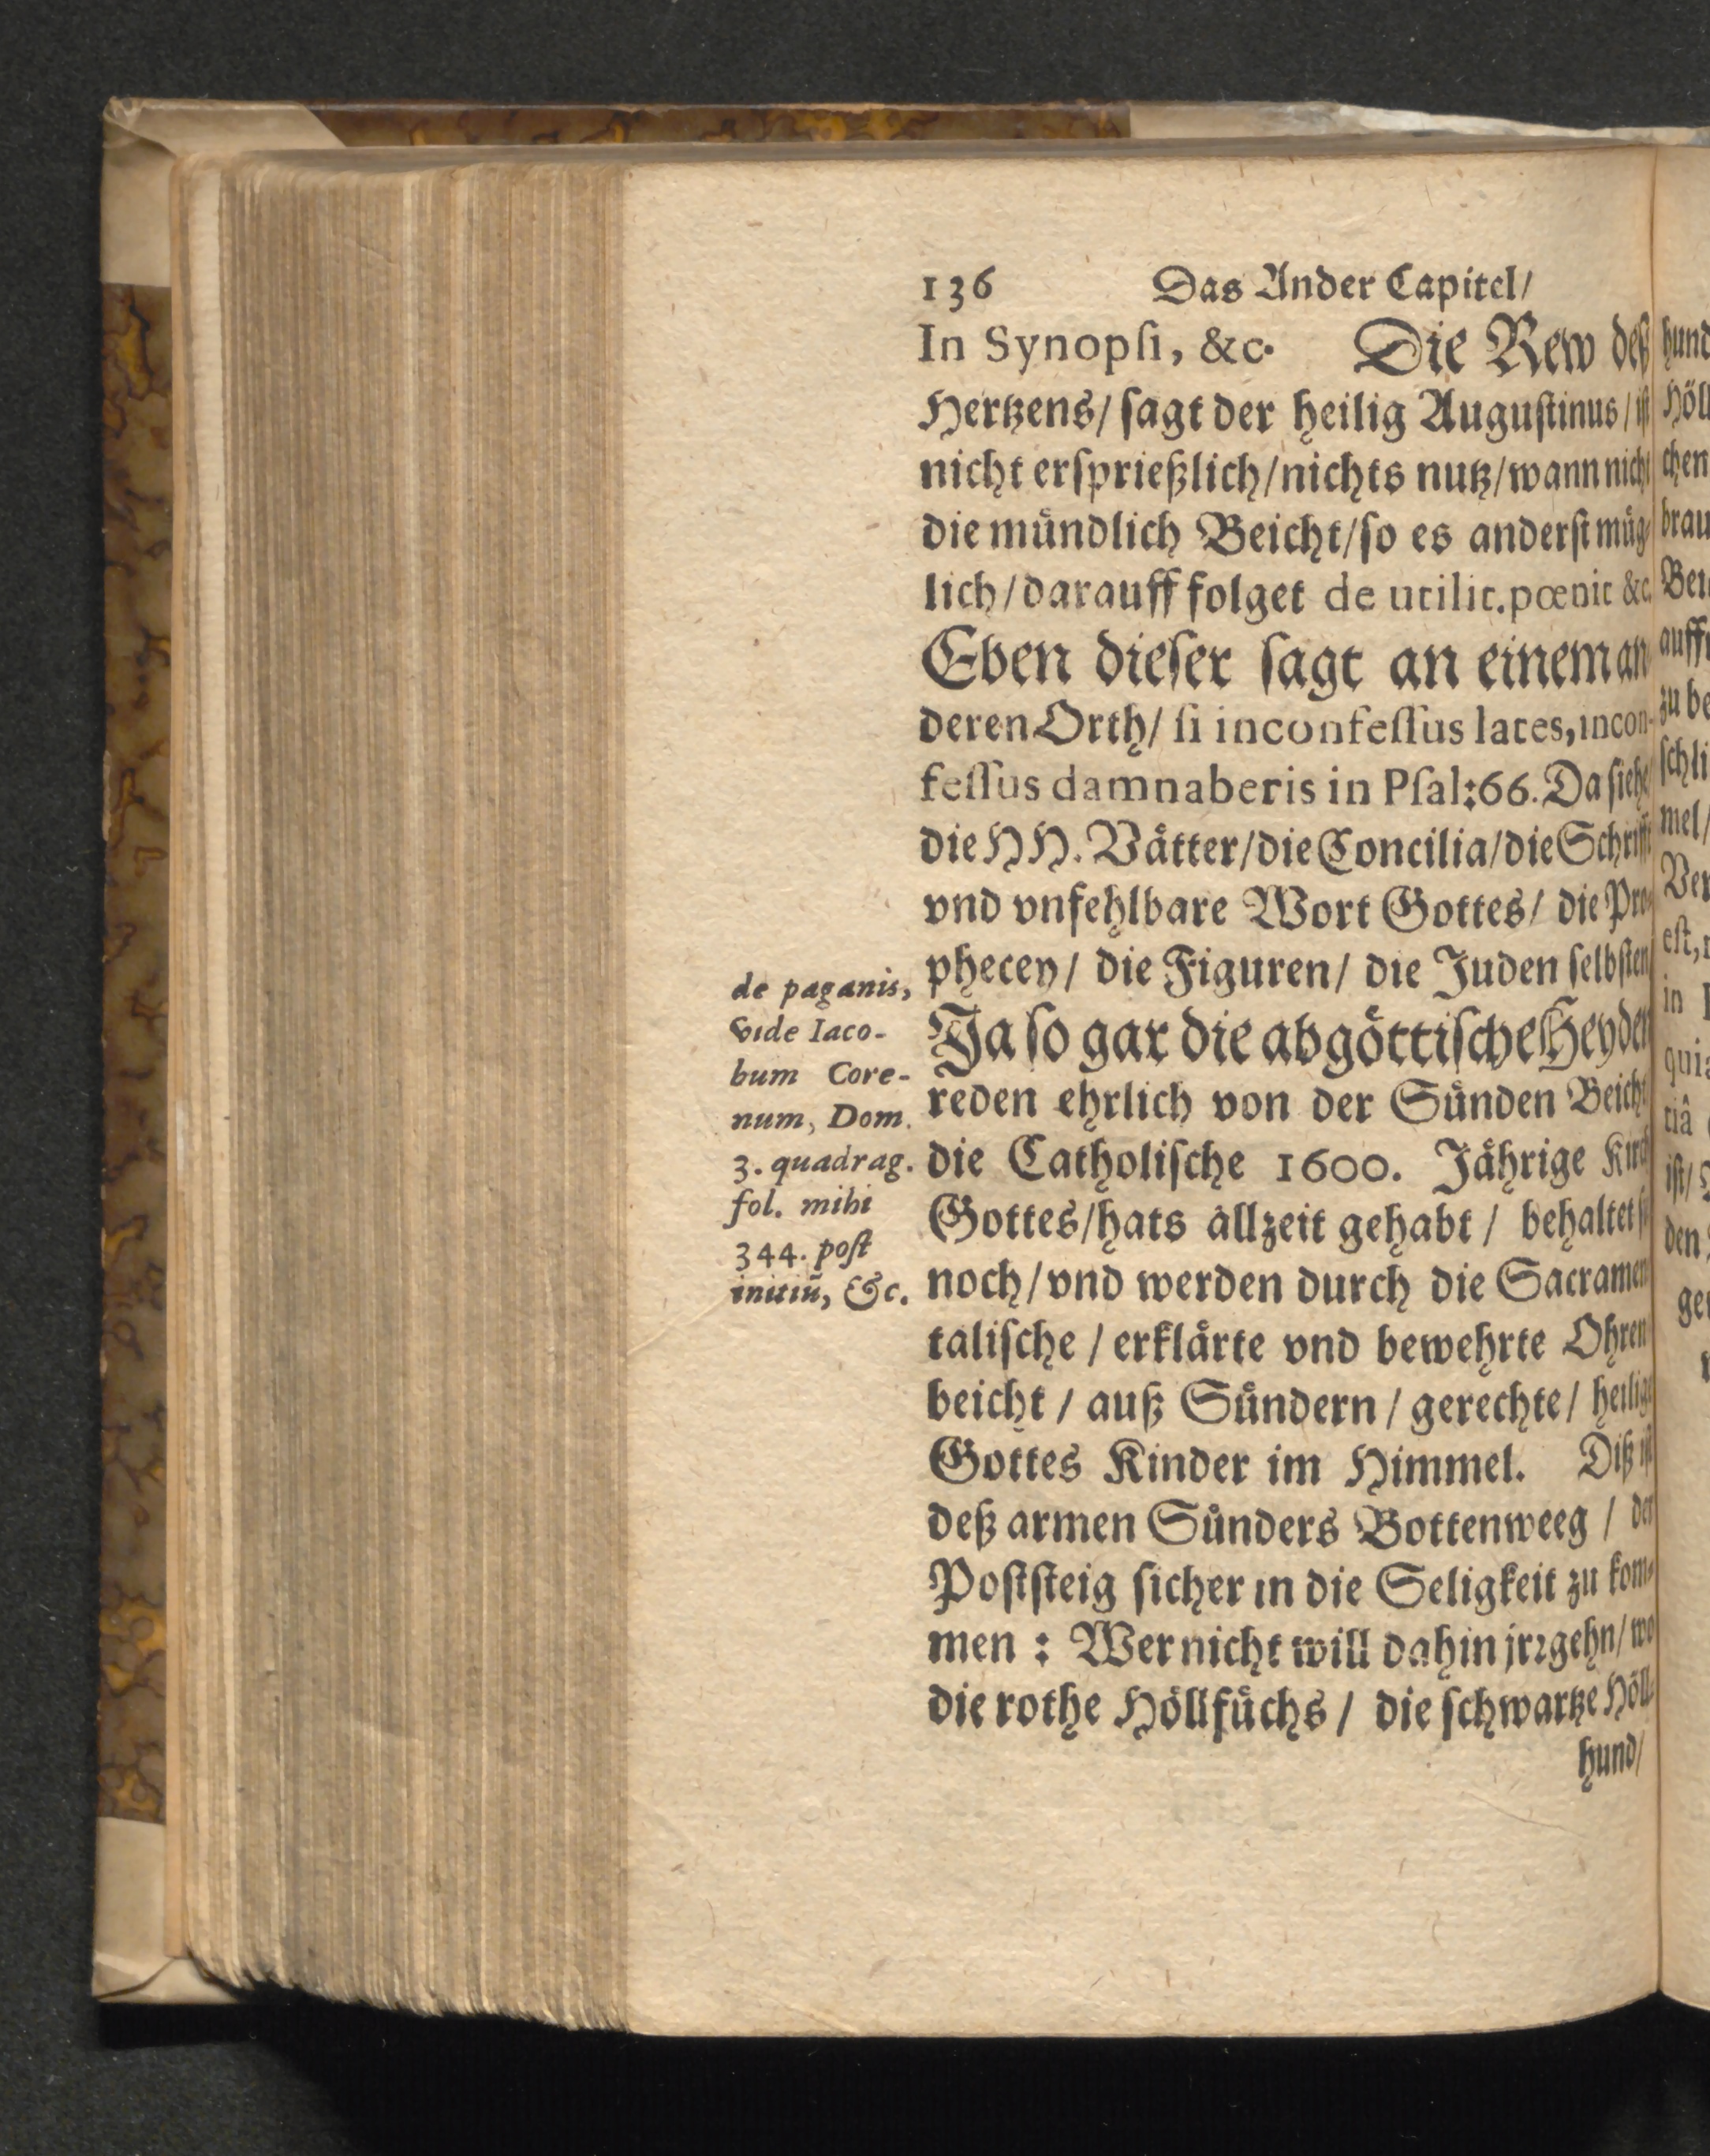 136 Das Ander Capitel/
In Synopſi, &c. Die Rew deß
Hertzens/ ſagt der heilig Auguſtinus/ iſt
nicht erſprießlich/nichts nutz/wann nicht
die mündlich Beicht/ſo es anderſt müg⸗
lich/darauff folget de utilit.pœnit &c.
Eben dieſer ſagt an einem an
deren Orth/ ſi inconfeſſus lates, incon-
feſſus damnaberis in Pſal:66. Da ſiehe
die HH. Vätter/die Concilia/die Schrifft
vnd vnfehlbare Wort Gottes/ die Pro⸗
phecey/ die Figuren/ die Juden ſelbſten
Ja ſo gar die abgöttiſche Heyden
reden ehrlich von der Sünden Beicht
die Catholiſche 1600. Jährige Kirch
Gottes/hats allzeit gehabt / behaltet
noch/vnd werden durch die Sacramen
taliſche / erklärte vnd bewehrte Ohren
beicht / auß Sündern / gerechte/ heilige
Gottes Kinder im Himmel. Diß iſt
deß armen Sünders Bottenweeg / der
Poſtſteig ſicher in die Seligkeit zu kom⸗
men : Wer nicht will dahin jrꝛgehn/ wo
die rothe Höllfüchs / die ſchwartze Höll⸗
hund/
de paganis,
vide Iaco-
bum Core-
num, Dom.
3. quadrag.
fol. mihi
344. poſt
initiũ, &c.